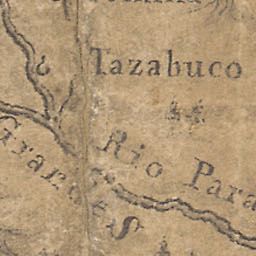 Tazabuco
Rio Para
Grandes